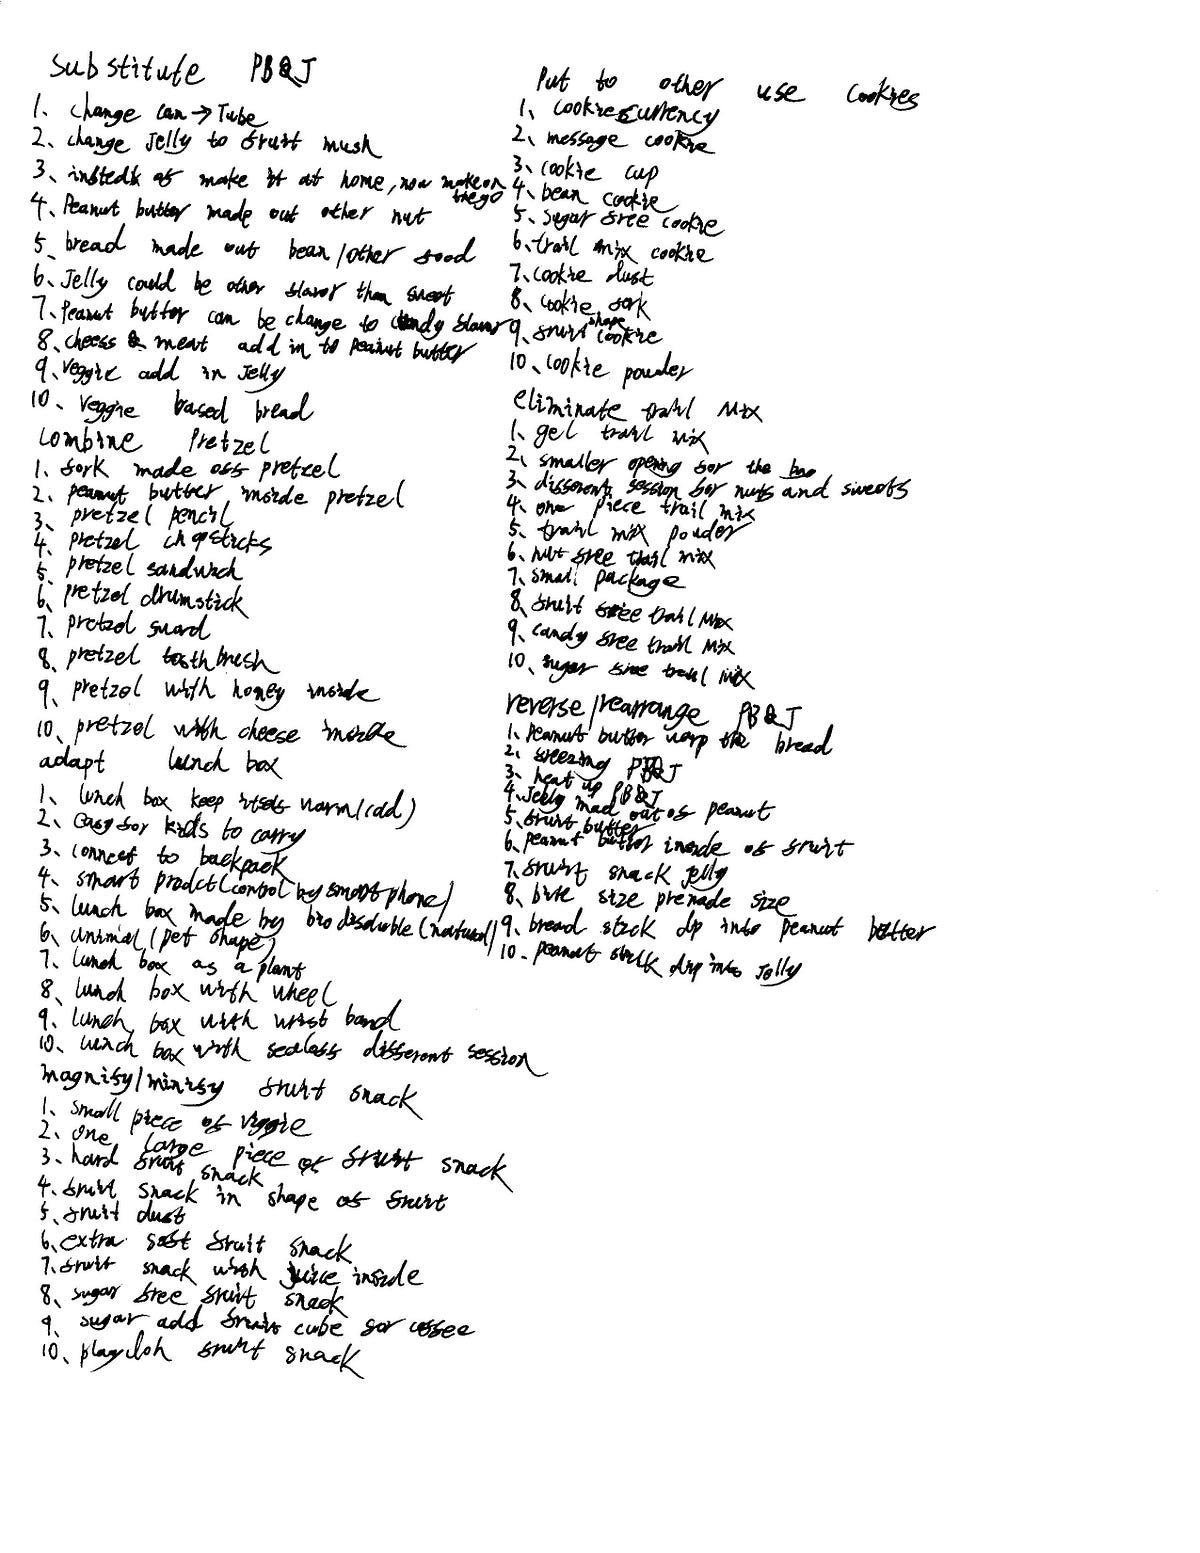 Substitute PB&J
1. change can → Tube
2. change Jelly to fruit mush
3. insteds of make it at home, now make on the go
4. Peanut butter made out other nut
5. bread made out bean/other food
6. Jelly could be other flavor than sweet
7. Peanut butter can be change to candy flavor
8. cheess & meat add in to peanut butter
9. Veggie add in Jelly
10. Veggie based bread
Combine Pretzel
1. fork made off pretzel
2. peanut butter inside pretzel
3. pretzel pencil
4. pretzel chopsticks
5. pretzel sandwich
6. pretzel drumstick
7. pretzel guard
8. pretzel toothbrush
9. pretzel with honey inside
10. pretzel with cheese inside
adapt lunch box
1. lunch box keep itself warm(cold)
2. easy for kids to carry
3. connect to backpack
4. smart prodct(control by smart phone)
5. lunch box made by bio disoluble (natural)
6. animal (pet shape)
7. lunch box as a plant
8. lunch box with wheel
9. lunch box with wrist band
10. lunch box with different session
magnify/minify fruit snack
1. small piece of veggie
2. one large piece of fruit snack
3. hard fruit snack
4. fruit snack in shape of fruit
5. fruit dust
6. extra soft fruit snack
7. fruit snack with juice inside
8. sugar free fruit snack
9. sugar add fruit cube for coffee
10. playdoh fruit snack
Put to other use cookies
1. cookie currency
2. message cookie
3. cookie cup
4. bean cookie
5. sugar free cookie
6. trail mix cookie
7. cookie dust
8. cookie fork
9. fruit shape cookie
10. cookie powder
eliminate trail mix
1. gel trail mix
2. smaller opening for the
3. different session for nuts and sweets
4. one piece trail mix
5. trail mix powder
6. nut free trail mix
7. small package
8. fruit free trail mix
9. candy free trail mix
10. sugar free trail mix
reverse/rearrange PB&J
1. Peanut butter warp the bread
2. freezing PB&J
3. heat up PB&J
4. Jelly mad out of peanut
5. fruit butter
6. peanut butter inside of fruit
7. fruit snack jelly
8. bite size premade size
9. bread stick dip into peanut butter
10. peanut stick dip into Jelly